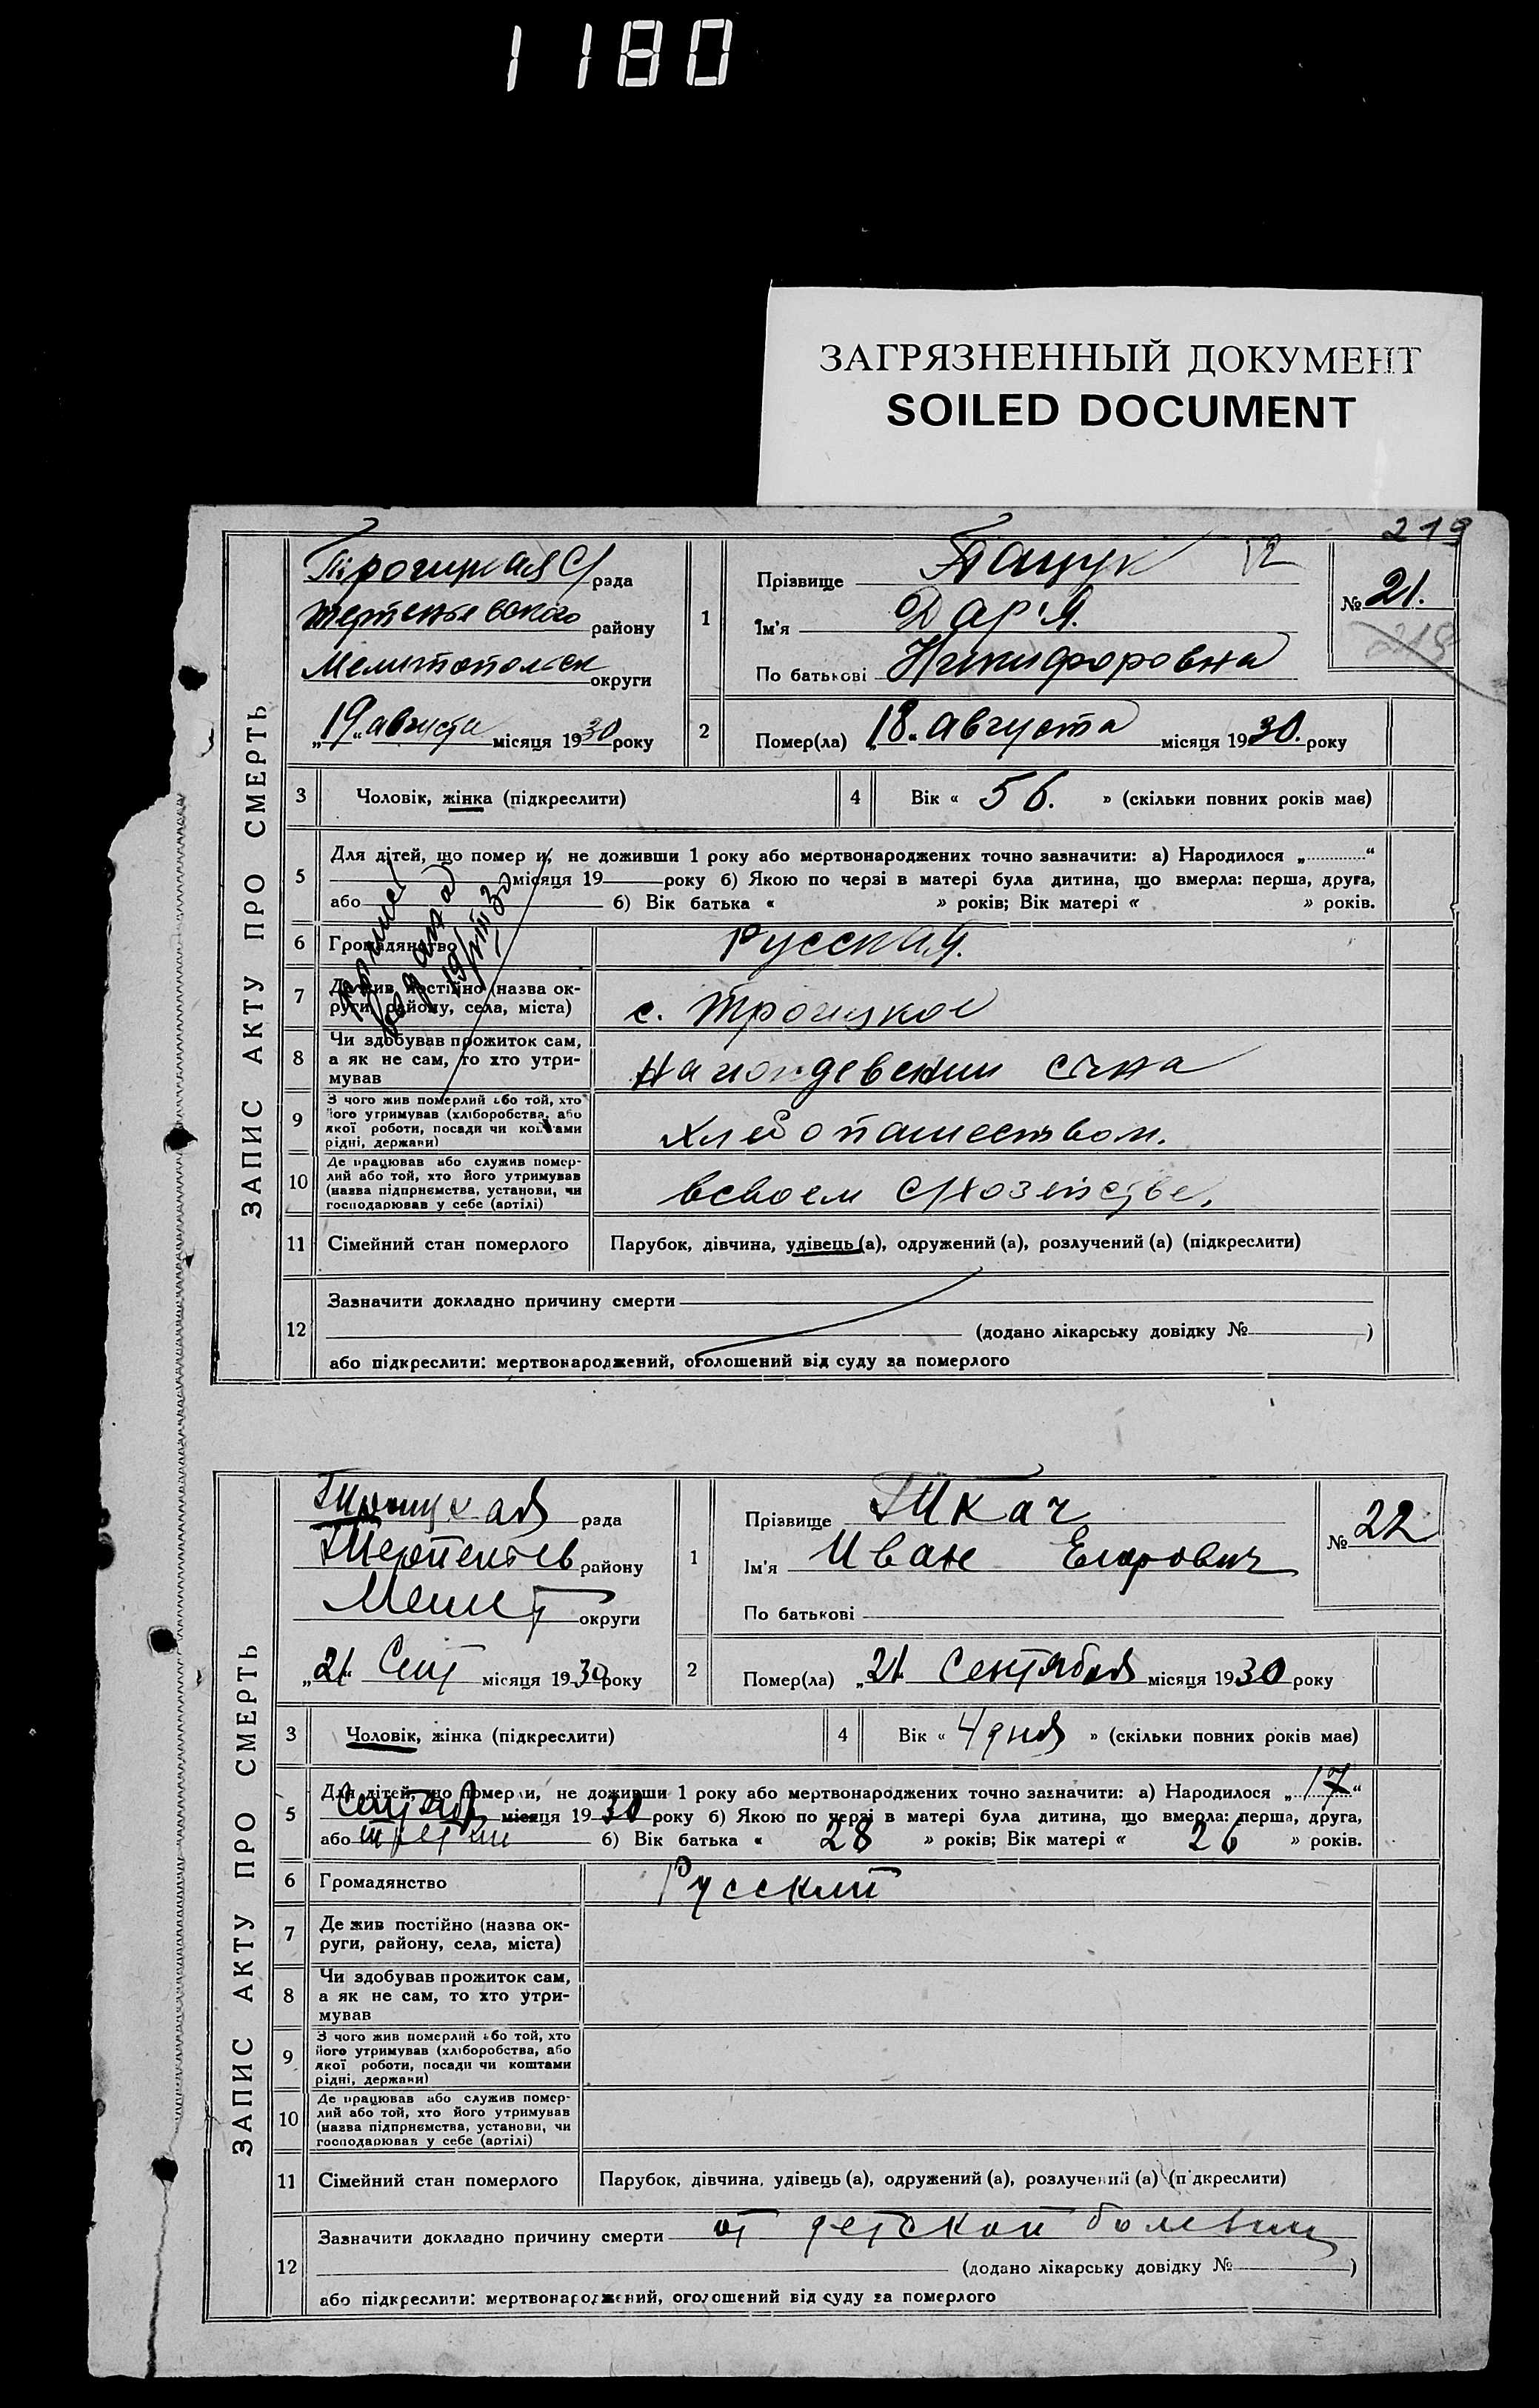 1180
ЗАГРЯЗНЕННЫЙ ДОКУМЕНТ
SOILED DOCUMENT
219
ЗАПИС АКТУ ПРО СМЕРТЬ
рада
району
Мелитопольск округи
„19“ августа місяця 1930 року
1
Прізвище Пащук
Ім'я Дар'я.
По батькові Никифоровна
№ 21.
219
2
Помер(ла) „18. августа місяця 1930. року
3
Чоловік, жінка (підкреслити)
4
Вік « 56. » (скільки повних років має)
5
Для дітей, що помер и, не доживши 1 року або мертвонароджених точно зазначити: а) Народилося „ “
місяця 19 року б) Якою по черзі в матері була дитина, що вмерла: перша, друга,
або б) Вік батька « » років; Вік матері « » років.
19/VIII 30
6
Громадянство
Русская.
7
Де жив постійно (назва ок-
руги, району, села, міста)
с. Троицкое
8
Чи здобував прожиток сам,
а як не сам, то хто утри-
мував
На иждевении сина
9
З чого жив померлий або той, хто
його утримував (хліборобства, або
якої роботи, посади чи коштами
рідні, держави)
хлебопашеством.
10
Де працював або служив помер-
лий або той, хто його утримував
(назва підприємства, установи, чи
господарював у себе (артілі)
всвоем с/хозяйстве.
11
Сімейний стан померлого
Парубок, дівчина, удівець (а), одружений (а), розлучений (а) (підкреслити)
12
Зазначити докладно причину смерти
(додано лікарську довідку № )
або підкреслити: мертвонароджений, оголошений від суду за померлого
ЗАПИС АКТУ ПРО СМЕРТЬ
Троицкая рада
Терпеньев району
Мелит округи
„21“ Сент місяця 1930 року
1
Прізвище Ткач
Ім'я Иван Егорович
По батькові
№ 22
2
Помер(ла) „21. Сентября місяця 1930 року
3
Чоловік, жінка (підкреслити)
4
Вік « 4 дня » (скільки повних років має)
5
Для дітей, що померли, не доживши 1 року або мертвонароджених точно зазначити: а) Народилося „17“
Сентяб місяця 1930 року б) Якою по черзі в матері була дитина, що вмерла: перша, друга,
або третий б) Вік батька « 28 » років; Вік матері « 26 » років.
6
Громадянство
Русский
7
Де жив постійно (назва ок-
руги, району, села, міста)
8
Чи здобував прожиток сам,
а як не сам, то хто утри-
мував
9
З чого жив померлий або той, хто
його утримував (хліборобства, або
якої роботи, посади чи коштами
рідні, держави)
10
Де працював або служив помер-
лий або той, хто його утримував
(назва підприємства, установи, чи
господарював у себе (артілі)
11
Сімейний стан померлого
Парубок, дівчина, удівець (а), одружений (а), розлучений (а) (підкреслити)
12
Зазначити докладно причину смерти от детской болезни
(додано лікарську довідку № )
або підкреслити: мертвонароджений, оголошений від суду за померлого